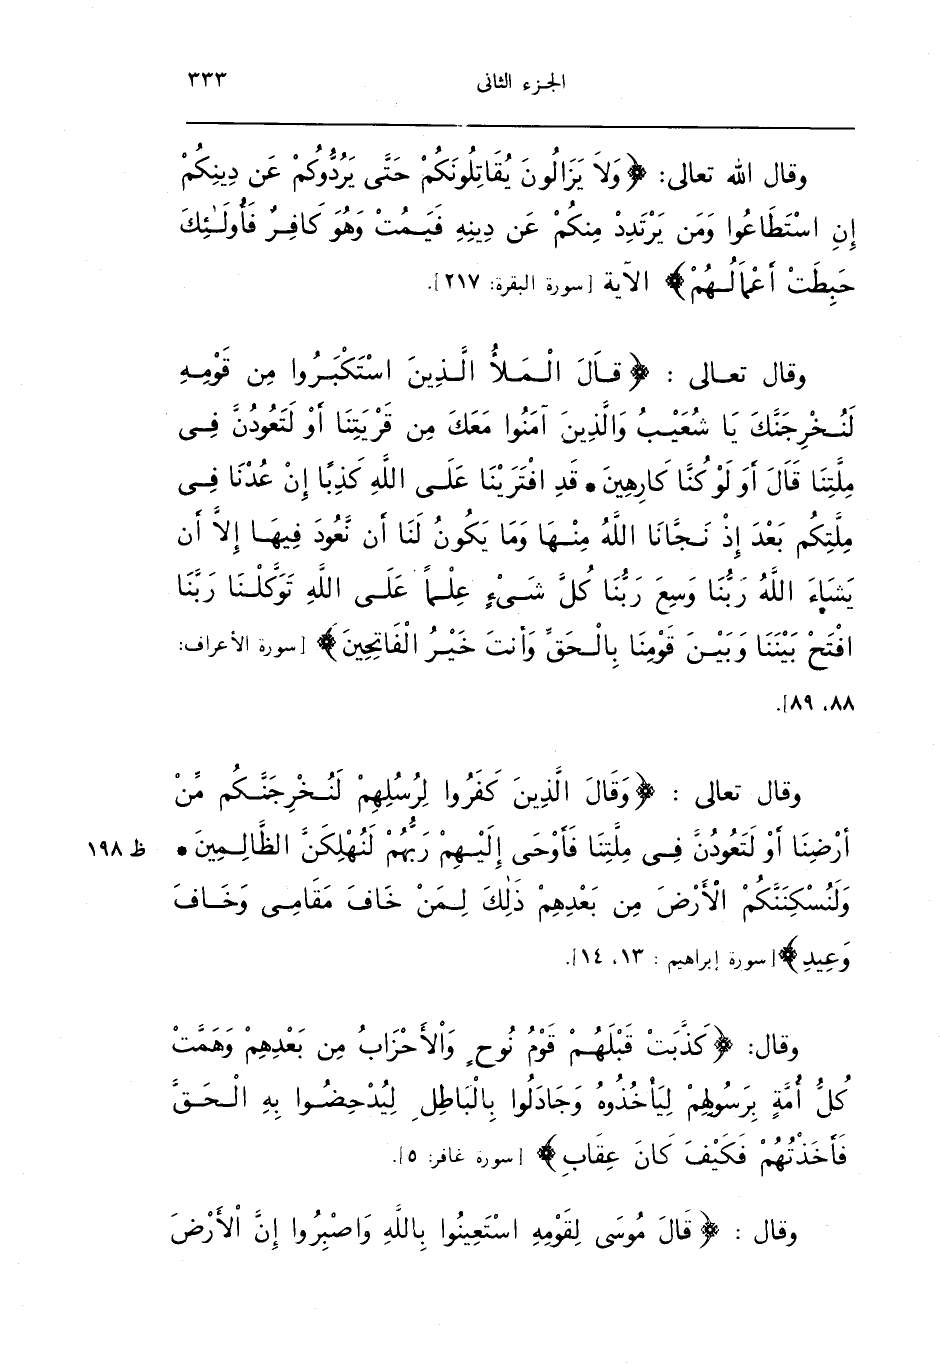 الجزء الثانى ٣٣٣
وقال الله تعالى: ﴿وَلاَ يَزَالُونَ يُقَاتِلُونَكُمْ حَتَّى يَرُدُّوكُمْ عَن دِينِكُمْ
إِنِ اسْتَطَاعُوا وَمَن يَرْتَدِدْ مِنكُمْ عَن دِينِهِ فَيَمُتْ وَهُوَ كَافِرٌ فَأُولَـٰئِكَ
حَبِطَتْ أَعْمَالُهُمْ﴾ الآية [سورة البقرة: ٢١٧].
وقال تعالى : ﴿قَالَ الْمَلأُ الَّذِينَ اسْتَكْبَرُوا مِن قَوْمِهِ
لَنُخْرِجَنَّكَ يَا شُعَيْبُ وَالَّذِينَ آمَنُوا مَعَكَ مِن قَرْيَتِنَا أَوْ لَتَعُودُنَّ فِى
مِلَّتِنَا قَالَ أَوَ لَوْ كُنَّا كَارِهِينَ • قَدِ افْتَرَيْنَا عَلَى اللَّهِ كَذِبًا إِنْ عُدْنَا فِى
مِلَّتِكُم بَعْدَ إِذْ نَجَّانَا اللَّهُ مِنْهَا وَمَا يَكُونُ لَنَا أَن نَّعُودَ فِيهَا إِلاَّ أَن
يَشَاءَ اللَّهُ رَبُّنَا وَسِعَ رَبُّنَا كُلَّ شَىْءٍ عِلْماً عَلَى اللَّهِ تَوَكَّلْنَا رَبَّنَا
افْتَحْ بَيْنَنَا وَبَيْنَ قَوْمِنَا بِالْحَقِّ وَأَنتَ خَيْرُ الْفَاتِحِينَ﴾ [سورة الأعراف:
٨٨، ٨٩].
وقال تعالى : ﴿وَقَالَ الَّذِينَ كَفَرُوا لِرُسُلِهِمْ لَنُخْرِجَنَّكُم مِّنْ
أَرْضِنَا أَوْ لَتَعُودُنَّ فِى مِلَّتِنَا فَأَوْحَى إِلَيْهِمْ رَبُّهُمْ لَنُهْلِكَنَّ الظَّالِمِينَ • ظ ١٩٨
وَلَنُسْكِنَنَّكُمْ الْأَرْضَ مِن بَعْدِهِمْ ذَٰلِكَ لِمَنْ خَافَ مَقَامِى وَخَافَ
وَعِيدِ﴾ [سورة إبراهيم : ١٣، ١٤].
وقال: ﴿كَذَّبَتْ قَبْلَهُمْ قَوْمُ نُوحٍ وَالْأَحْزَابُ مِن بَعْدِهِمْ وَهَمَّتْ
كُلُّ أُمَّةٍ بِرَسُولِهِمْ لِيَأْخُذُوهُ وَجَادَلُوا بِالْبَاطِلِ لِيُدْحِضُوا بِهِ الْحَقَّ
فَأَخَذْتُهُمْ فَكَيْفَ كَانَ عِقَابِ﴾ [سورة غافر: ٥].
وقال : ﴿قَالَ مُوسَى لِقَوْمِهِ اسْتَعِينُوا بِاللَّهِ وَاصْبِرُوا إِنَّ الْأَرْضَ